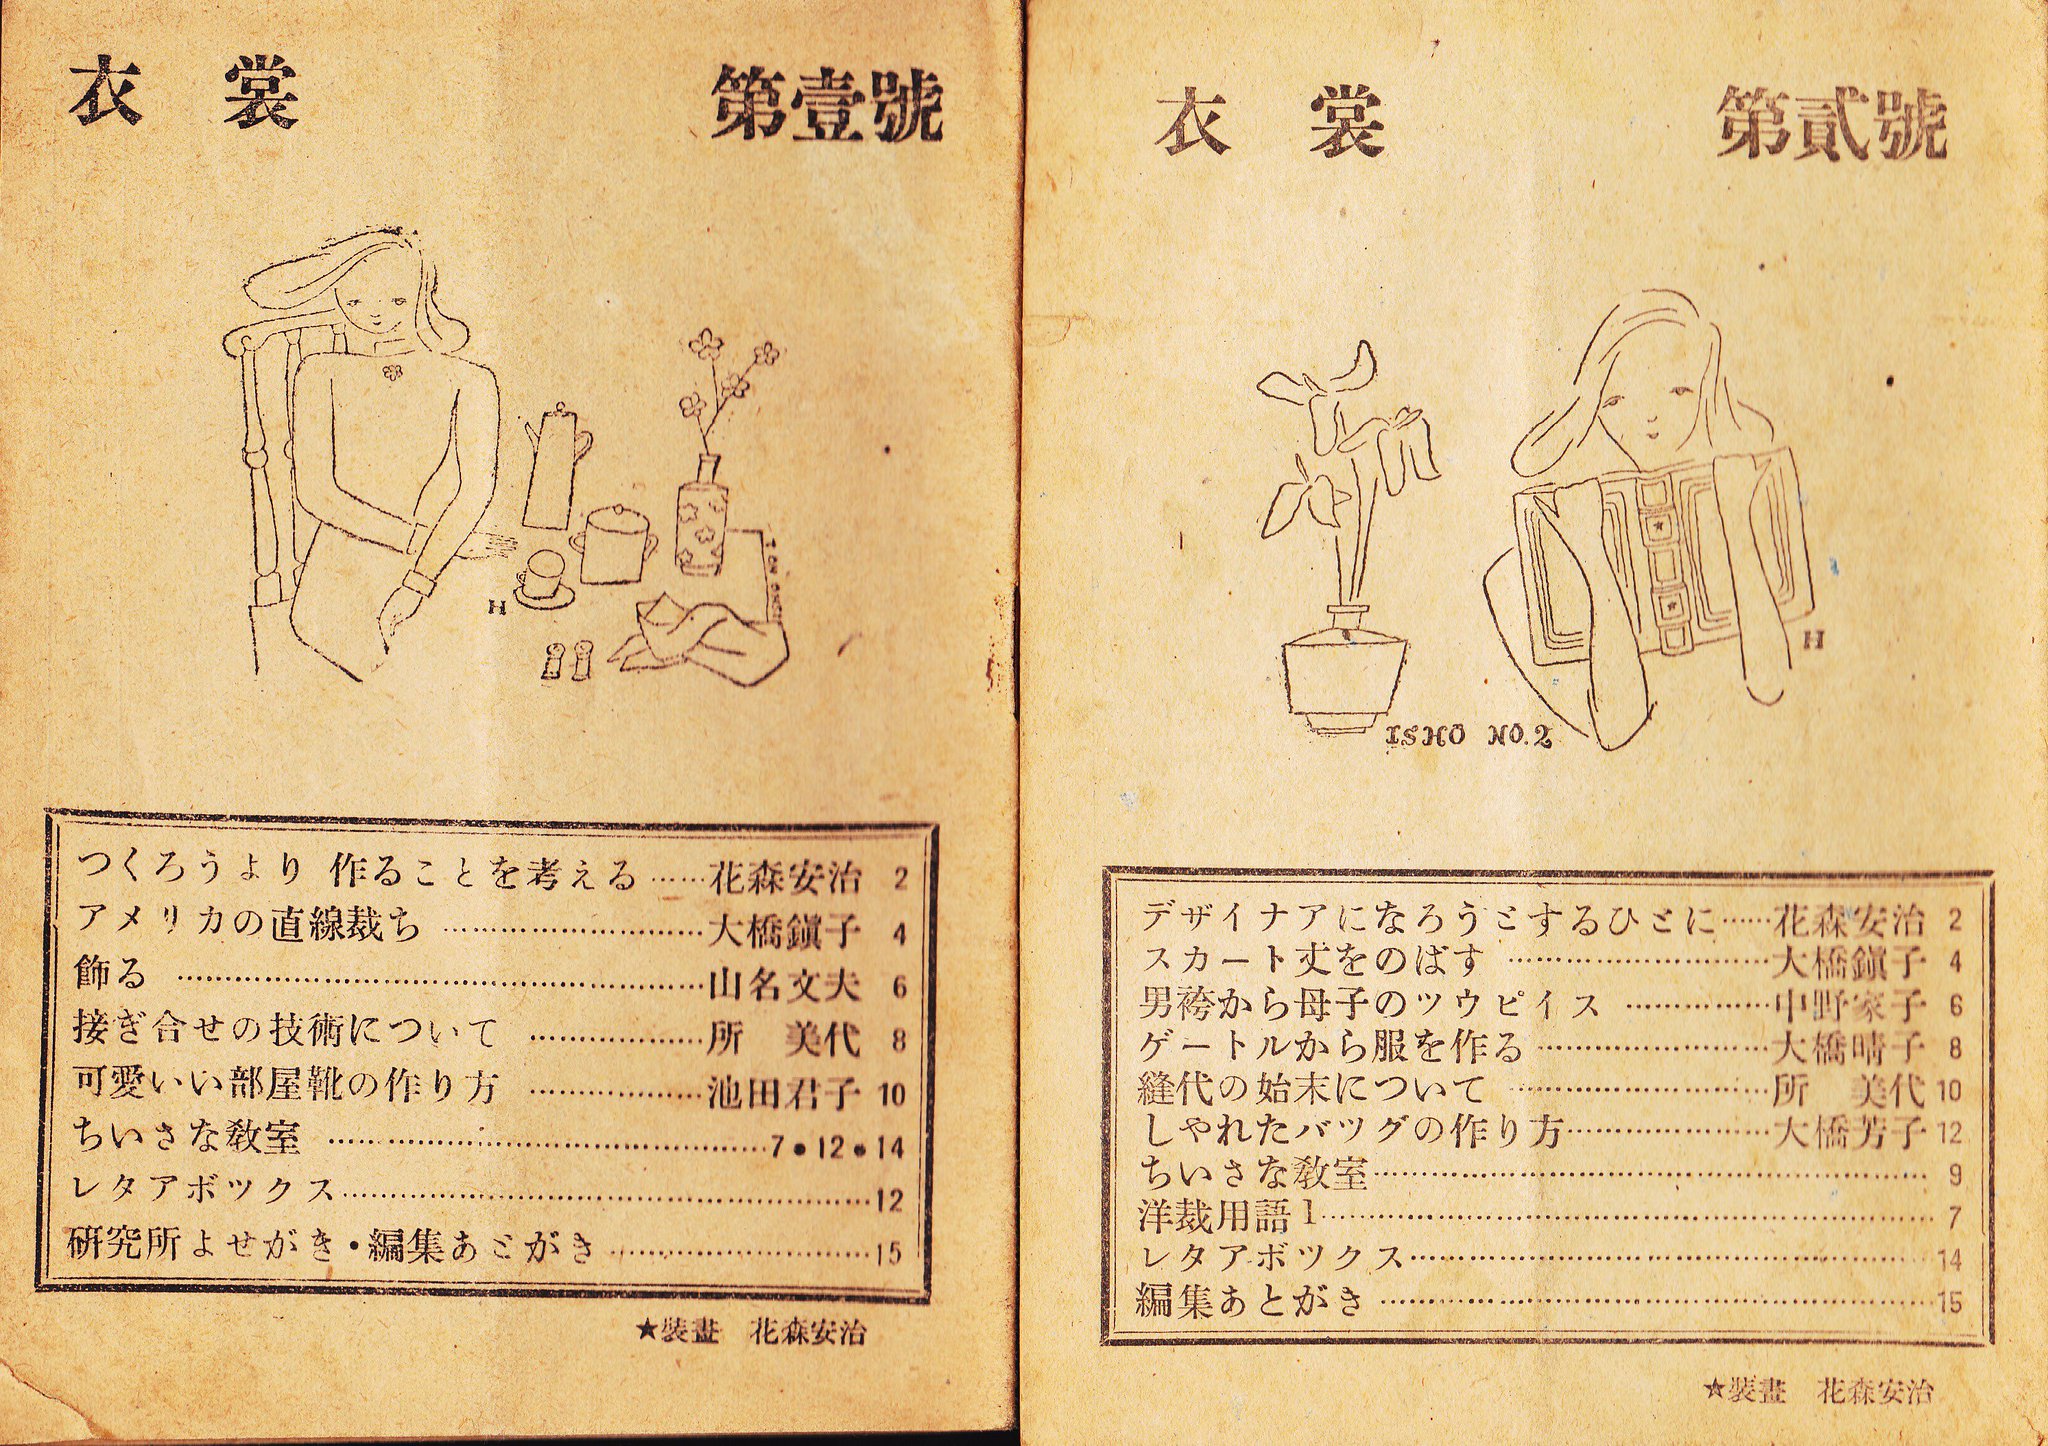 衣 裳 第壹號
H
つくろうより 作ることを考える ……花森安治 2
アメリカの直線裁ち ……………………大橋鎭子 4
飾る ……………………………………………山名文夫 6
接ぎ合せの技術について ………………所 美代 8
可愛いい部屋靴の作り方 ………………池田君子 10
ちいさな教室 ……………………………………7•12•14
レタアボツクス……………………………………………12
研究所よせがき・編集あとがき ……………………15
★裝畫 花森安治
衣 裳 第貳號
H
ISHO NO.2
デザイナアになろうとするひとに……花森安治 2
スカート丈をのばす ……………………大橋鎭子 4
男袴から母子のツウピイス ……………中野家子 6
ゲートルから服を作る …………………大橋晴子 8
縫代の始末について ……………………所 美代 10
しやれたバツグの作り方………………大橋芳子 12
ちいさな教室……………………………………………… 9
洋裁用語1…………………………………………………… 7
レタアボツクス……………………………………………14
編集あとがき ………………………………………………15
★裝畫 花森安治